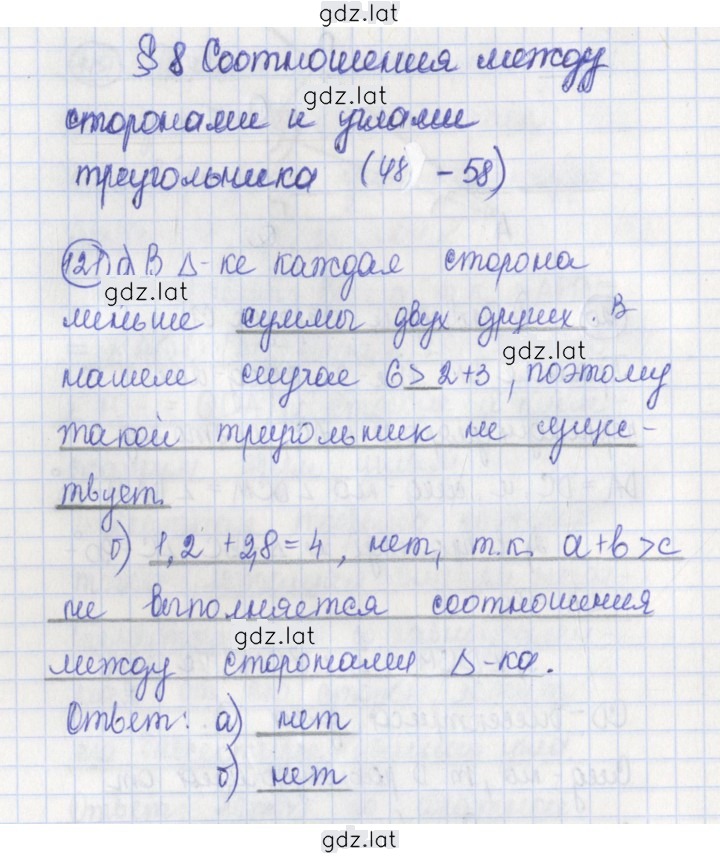 gdz.lat
§ 8 Соотношения между
gdz.lat
сторонами и углами
треугольника (48 – 58)
121) а) В Δ-ке каждая сторона
gdz.lat
меньше суммы двух других. В
gdz.lat
нашем случае 6 > 2+3, поэтому
такой треугольник не сущес-
твует.
б) 1,2 + 2,8 = 4, нет, т.к. a+b>c
не выполняется соотношения
gdz.lat
между сторонами Δ-ка.
Ответ: а) нет
б) нет
gdz.lat